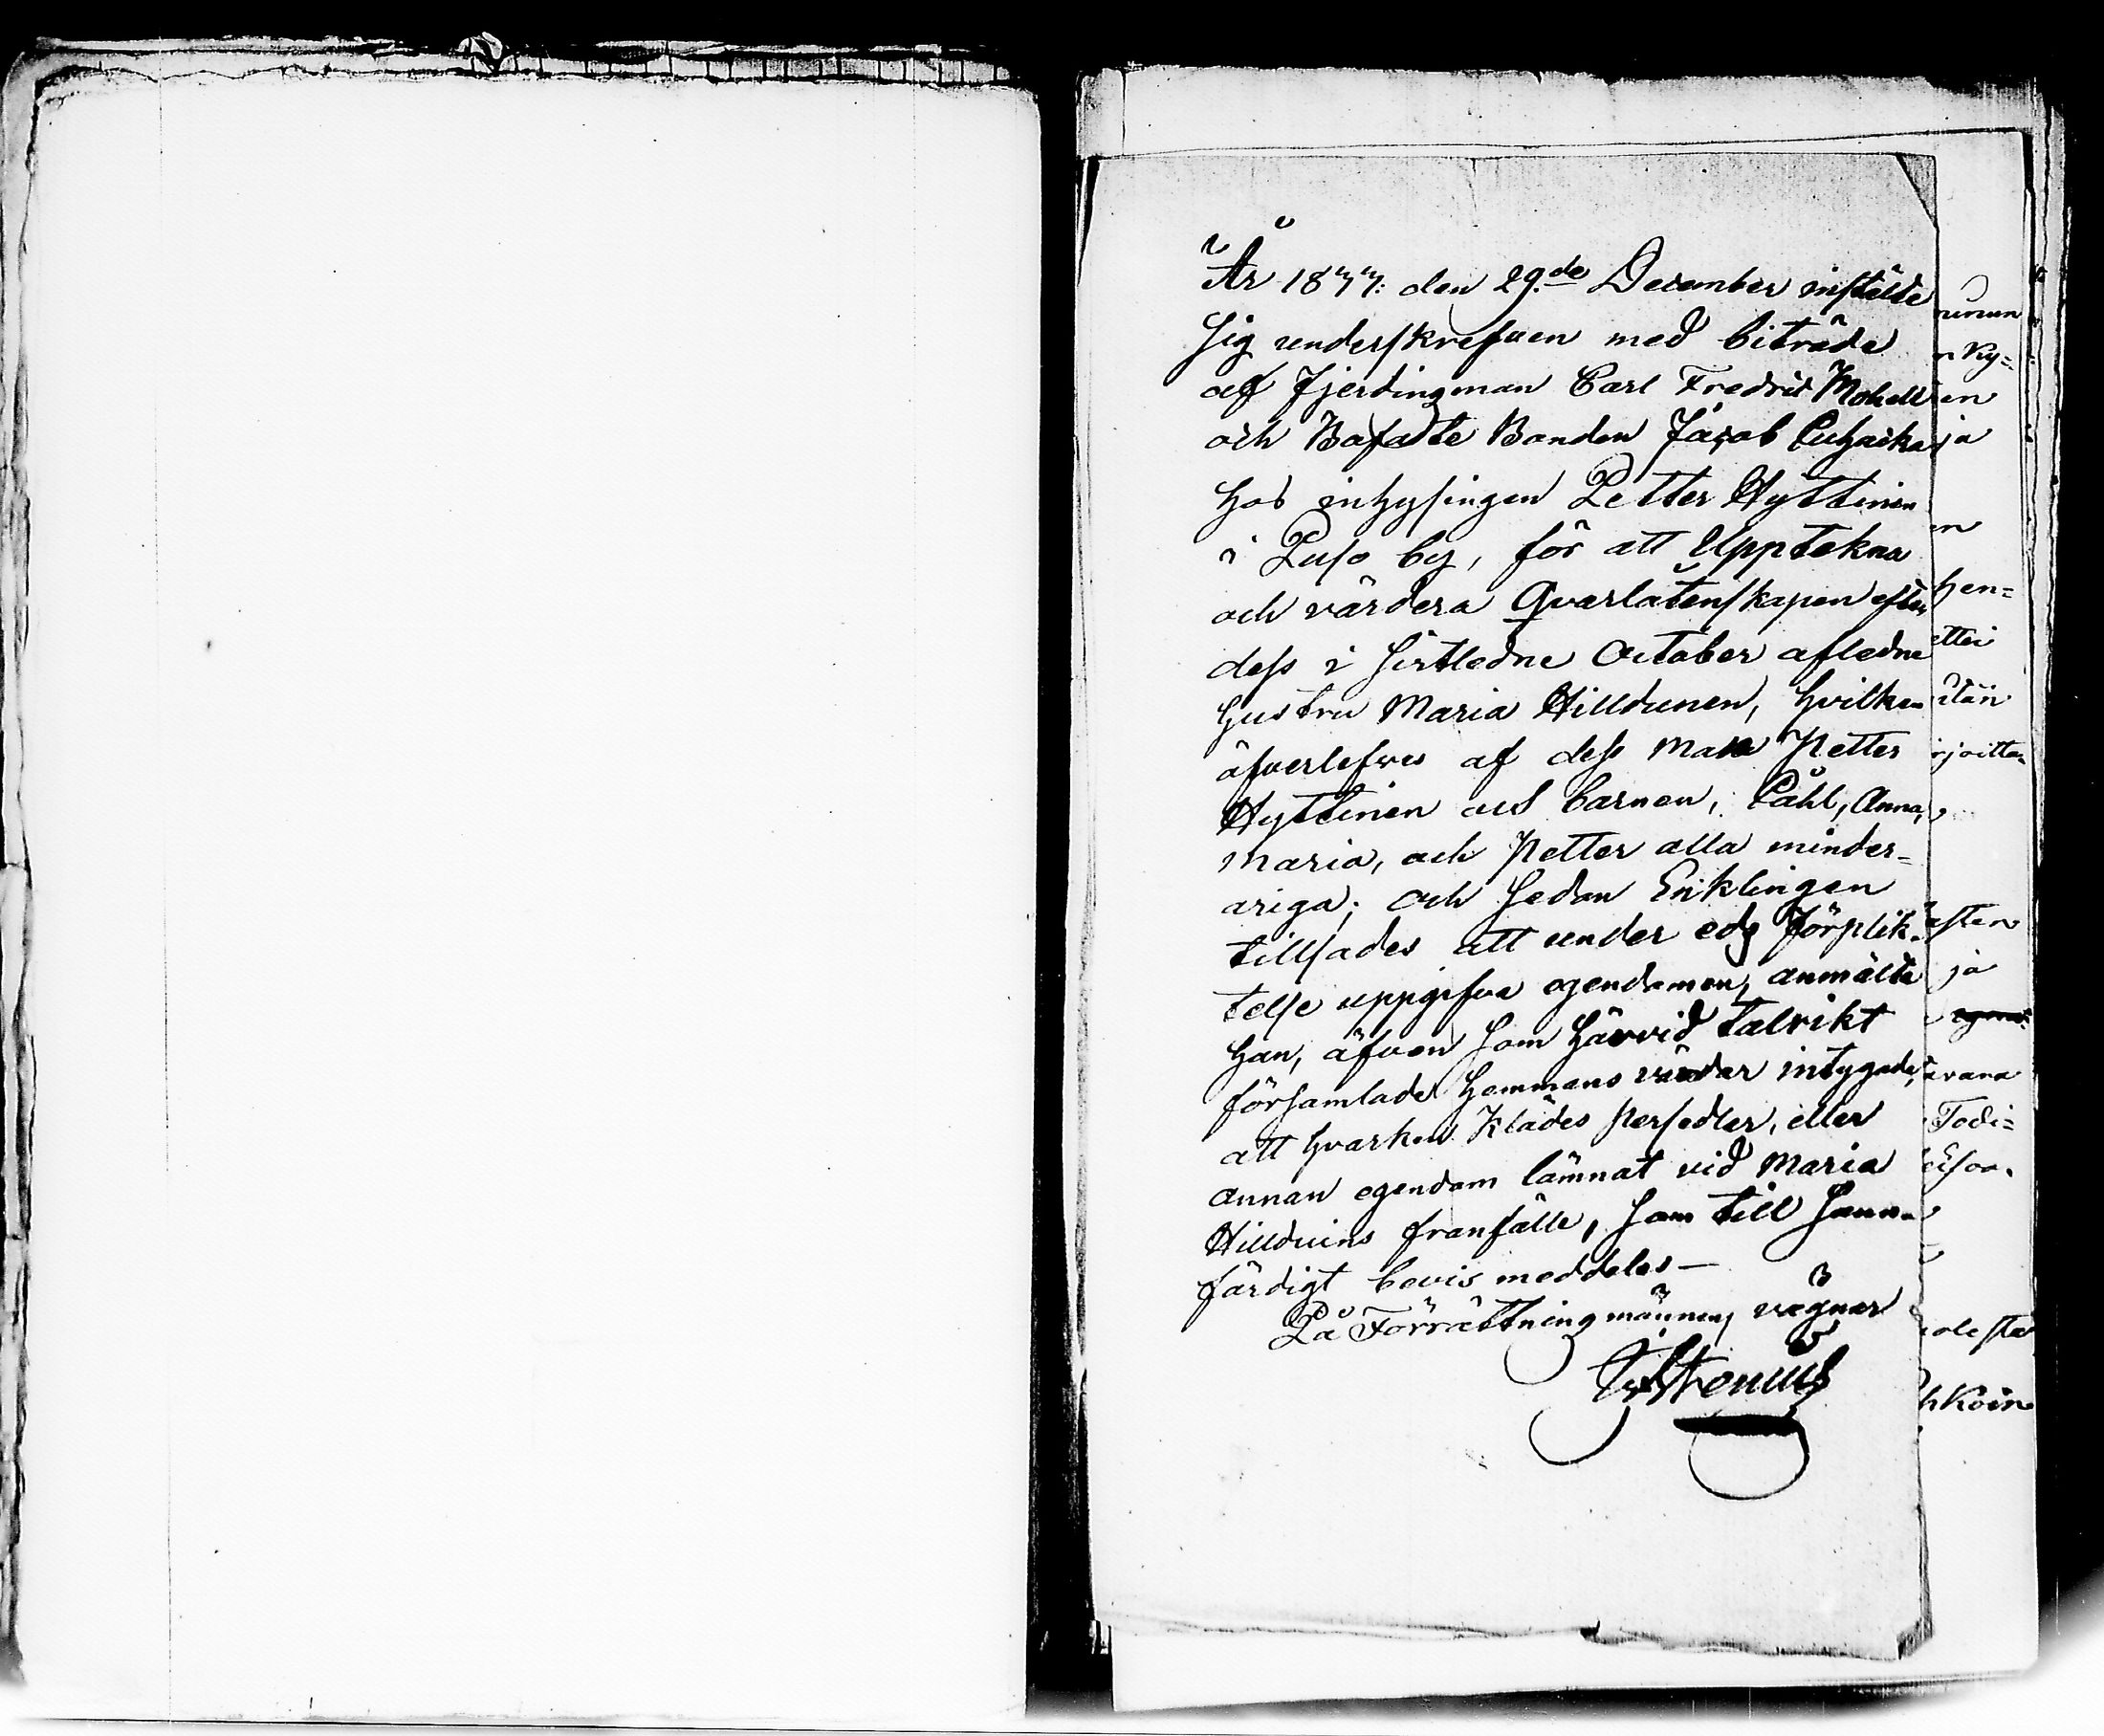 År 1877: den 29.de December instälde
sig underskrefven med biträde
af fjerdingman Carl Fredrik Mohell
och Bofaste Bonden Jacob Puhacka
hos inhysingen Petter Hyttinen
i Puso by, för att Upptekna
och värdera Qvarlåtenskapen efter
dess i sistledne October afledne
hustru Maria Hilldunen, hvilken
äfverlefves af dess man Petter
Hyttinen och barnen, Påhl, Anna,
Maria, och Petter alla minder-
ariga; och sedan Enklingen
tillsades att under edz förplik-
telse uppgifva egendomen, anmälte
han, äfven som härvid talrikt
församlade hemmans värdar intygade,
att hvarken klädes persedler, eller
annan egendom lämnat vid Maria
Hillduins franfälle, som till sann-
färdigt bevis meddeles —
På Förrättningmännens vägnar
n Ky=
en
ja
n
hen=
ettei
itän
rjoitta
esten
ja
avana
Todi=
olesta
hkoin